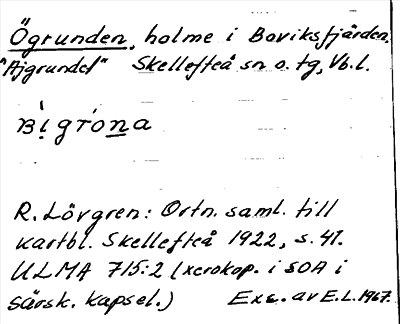 Ögrunden, holme i Boviksfjärden,
"Ajgrundet" Skellefteå sn o. tg, Vb.l.
R. Lövgren: Ortn. saml. till
kartbl. Skellefteå 1922, s. 41.
ULMA 715:2 (xerokop. i SOA i
särsk. kapsel.) Exc. av E.L. 1967.